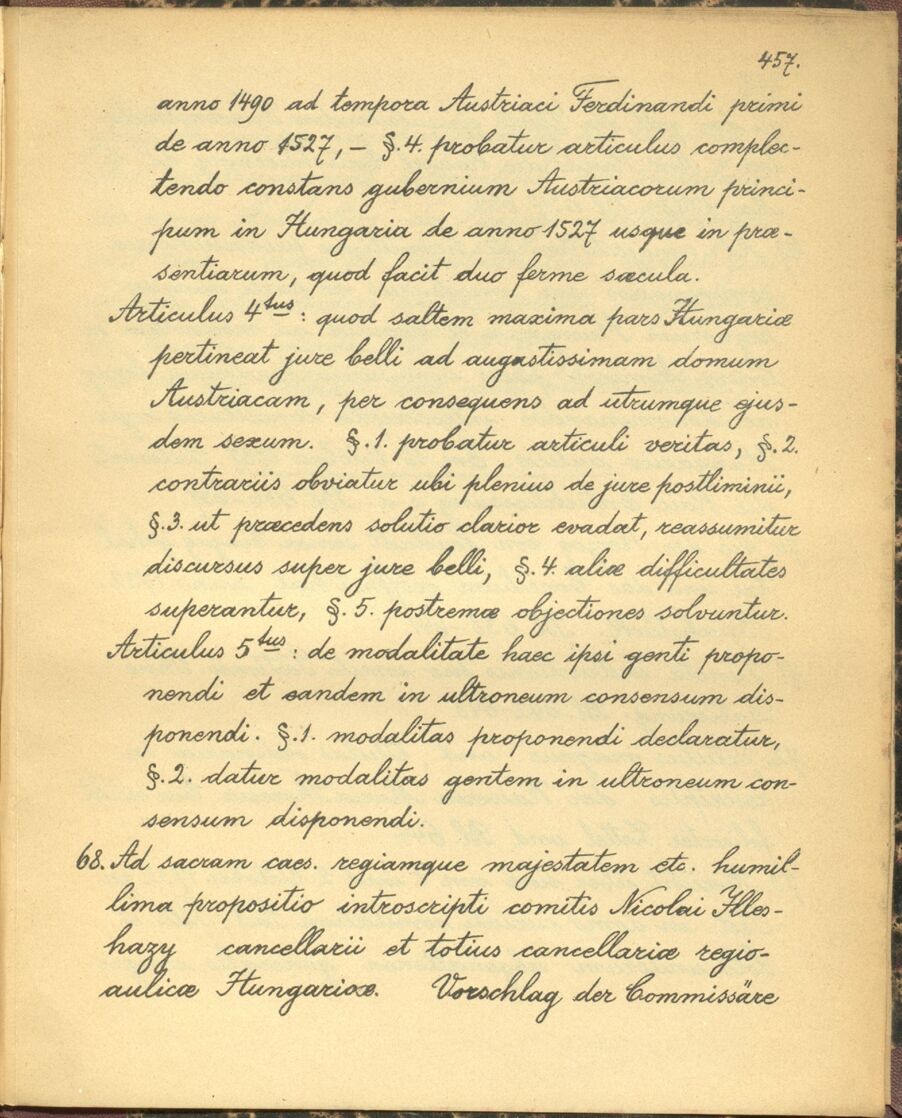 457.
anno 1490 ad tempora Austriaci Ferdinandi primi
de anno 1527, – §.4. probatur articulus complec-
tendo constans gubernium Austriacorum princi-
pum in Hungaria de anno 1527 usque in præ-
sentiarum, quod facit duo ferme sæcula.
Articulus 4tus: quod saltem maxima pars Hungariæ
pertineat jure belli ad augustissimam domum
Austriacam, per consequens ad utrumque ejus-
dem sexum. §.1. probatur articuli veritas, §.2.
contrariis obviatur ubi plenius de jure postliminii,
§.3. ut præcedens solutio clarior evadat, reassumitur
discursus super jure belli, §.4. aliæ difficultates
superantur, §.5. postremæ objectiones solvuntur.
Articulus 5tus: de modalitate haec ipsi genti propo-
nendi et eandem in ultroneum consensum dis-
ponendi. §.1. modalitas proponendi declaratur,
§.2. datur modalitas gentem in ultroneum con-
sensum disponendi.
68. Ad sacram caes. regiamque majestatem etc. humil-
lima propositio introscripti comitis Nicolai Illes-
hazy cancellarii et totius cancellariæ regio-
aulicæ Hungariæ. Vorschlag der Commissäre